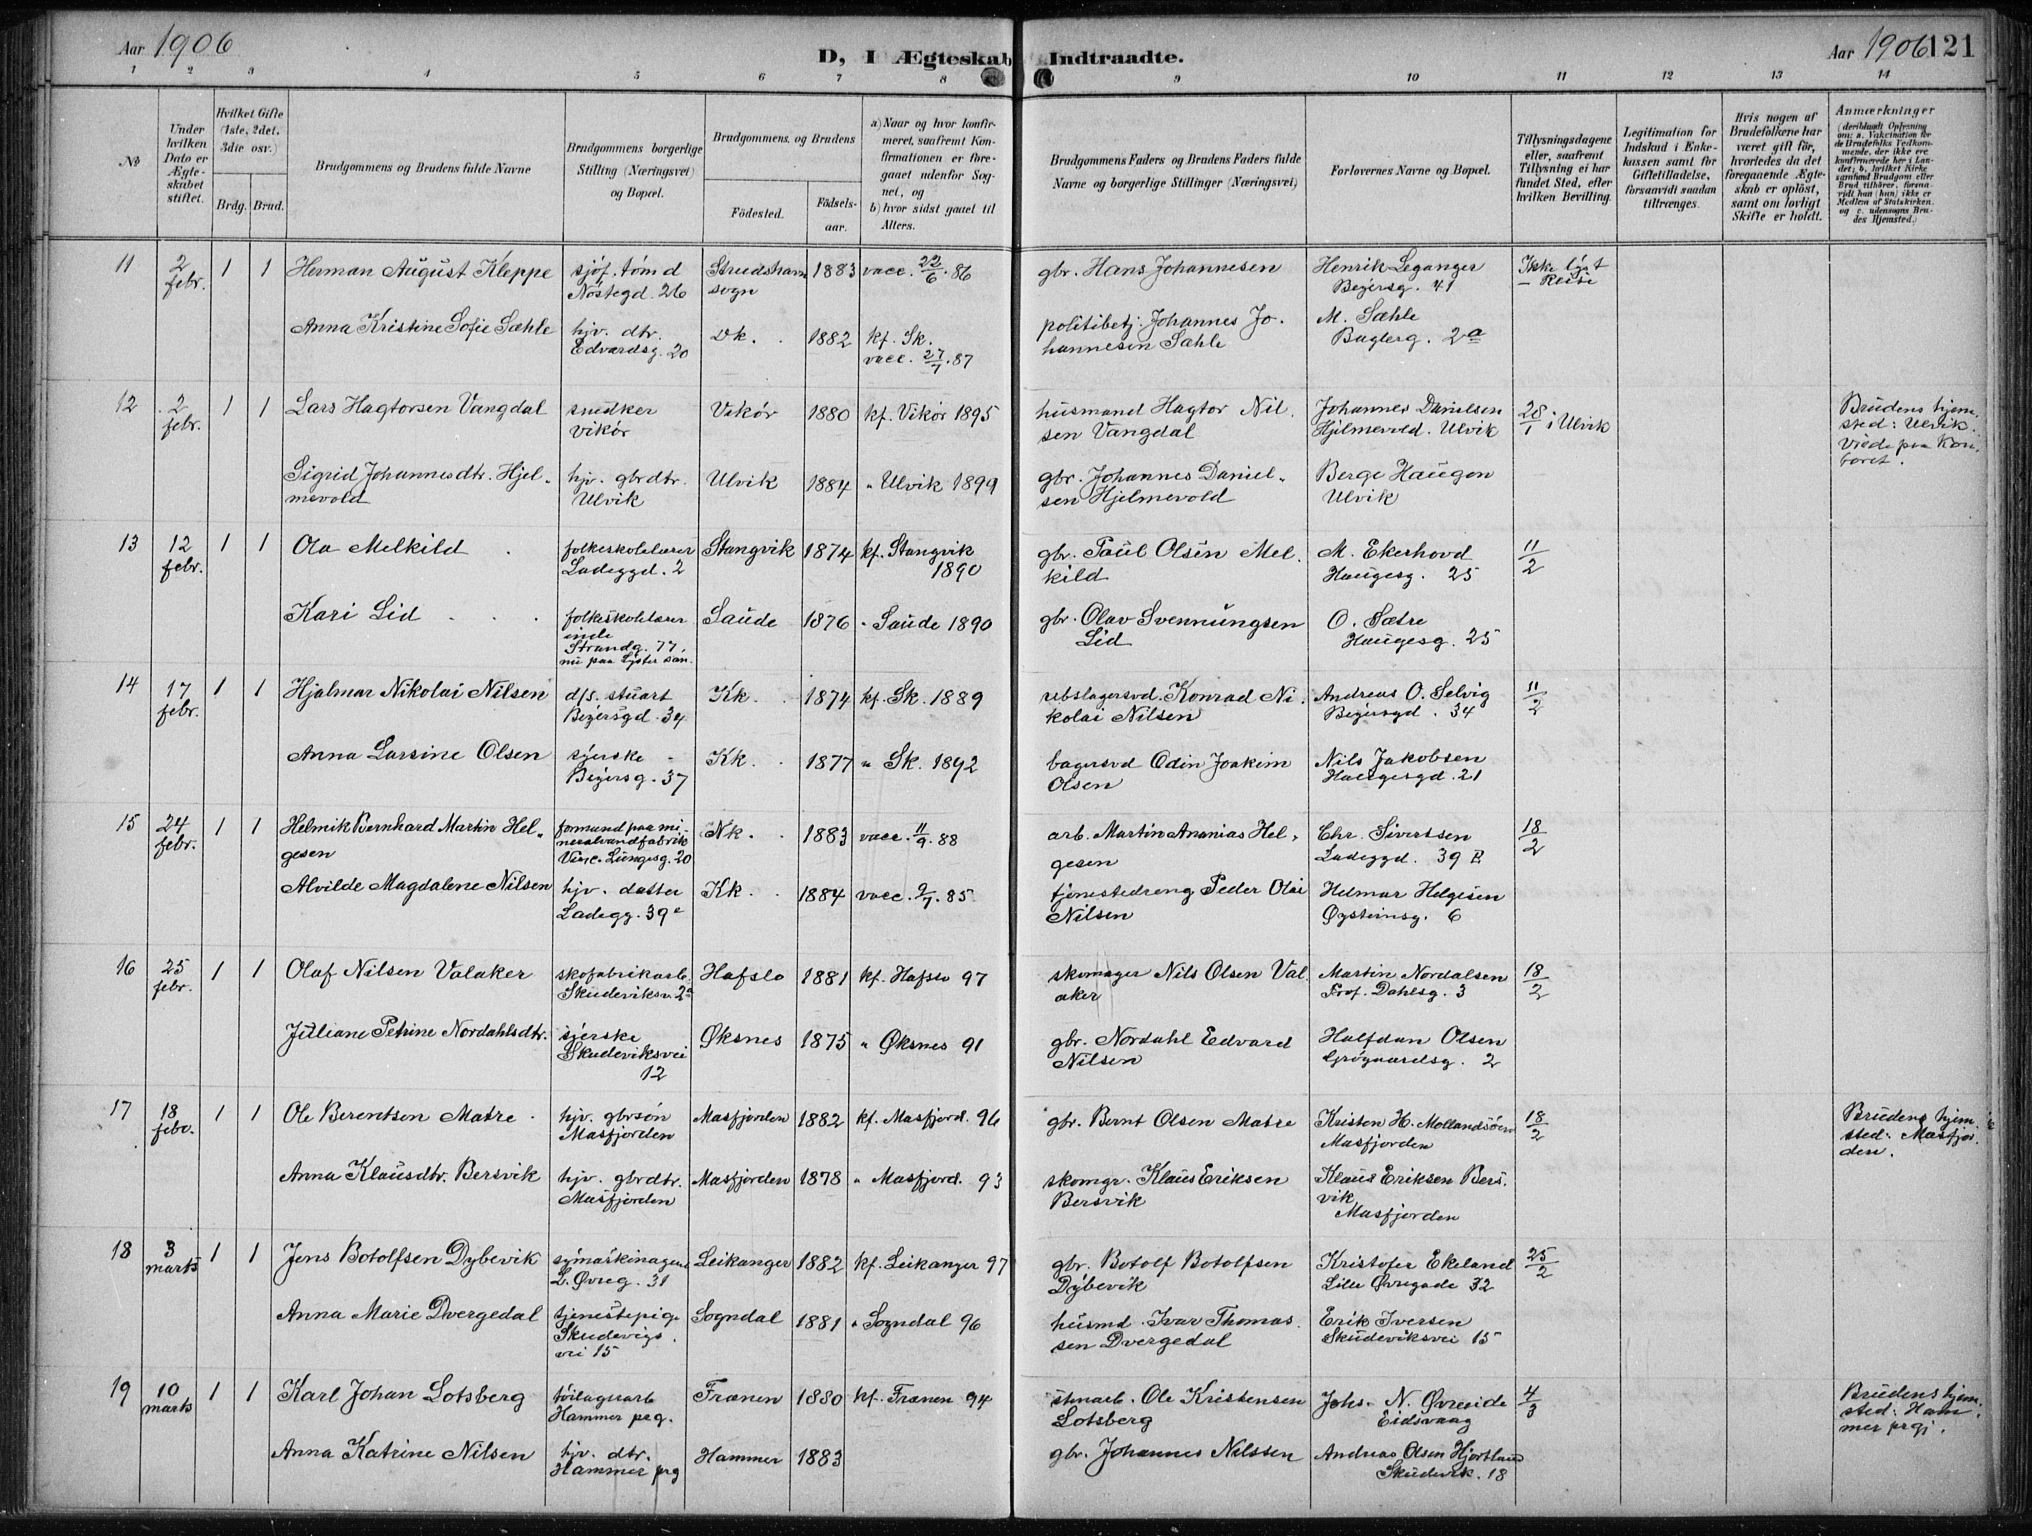 Aar 1906
D, 1 Ægteskab Indtraadte.
Aar 1906 121
1 2 3 4 5 6 7 8 9 10 11 12 13 14
No
Under hvilken Dato er Ægteskabet stiftet.
Hvilket Gifte (1ste, 2det, 3die osv.)
Brdg. Brud.
Brudgommens og Brudens fulde Navne
Brudgommens borgerlige Stilling (Næringsvei) og Bopæl.
Brudgommens og Brudens
Fødested.
Fødsels-aar.
a) Naar og hvor konfirmeret, saafremt Konfirmationen er foregaaet udenfor Sognet, og
b) hvor sidst gaaet til Alters.
Brudgommens Faders og Brudens Faders fulde Navne og borgerlige Stillinger (Næringsvei)
Forlovernes Navne og Bopæl.
Tillysningsdagene eller, saafremt Tillysning ei har fundet Sted, efter hvilken Bevilling.
Legitimation for Indskud i Enkekassen samt for Giftetilladelse, forsaavidt saadan tiltrænges.
Hvis nogen af Brudefolkene har været gift før, hvorledes da det foregaaende Ægteskab er opløst, samt om lovligt Skifte er holdt.
Anmærkninger
(deriblandt Oplysning om: a. Vakcination for de Brudefolks Vedkommende, der ikke ere konfirmerede her i Landet; b. hvilket Kirkesamfund Brudgom eller Brud tilhører, forsaavidt han (hun) ikke er Medlem af Statskirken, og c. udensogns Brudes Hjemsted.)
11 2 febr. 1 1 Herman August Kleppe sjøf. tømd Nøstegd. 26 Strudshavn sogn 1883 vacc. 22/6 .86 gbr. Hans Johannesen Henrik Leganger Beyersg. 41 Ikke lyst — Reise
Anna Kristine Sofie Sæhle hjv. dtr. Edvardsg. 20 Dk. 1882 kf. Sk. vacc. 27/7 .87 politibetj. Johannes Johannesen Sæhle M. Sæhle Baglerg. 2a
12 2 febr. 1 1 Lars Hagtorsen Vangdal snedker Vikør Vikør 1880 kf. Vikør 1895 husmand Hagtor Nilsen Vangdal Johannes Danielsen Hjelmevold. Ulvik 28/1 i Ulvik Brudens hjemsted: Ulvik. Viede paa Kontoret.
Sigrid Johannesdtr. Hjelmevold hjv. gbrdtr. Ulvik Ulvik 1884 " Ulvik 1899 gbr. Johannes Danielsen Hjelmevold Berge Haugen Ulvik
13 12 febr. 1 1 Ola Melkild folkeskolelærer Ladeggd. 2 Stangvik 1874 kf. Stangvik 1890 gbr. Paul Olsen Melkild M. Ekerhovd Haugesg. 25 11/2
Kari Lid folkeskolelærerinde Strandg. 77, nu paa Lyster san. Saude 1876 " Saude 1890 gbr. Olav Svennungsen Lid O. Sætre Haugesg. 25
14 17 febr. 1 1 Hjalmar Nikolai Nilsen d/s. stuart Beyersgd. 34 Kk. 1874 kf. Sk. 1889 rebslagersvd. Konrad Nikolai Nilsen Andreas O. Selvig Beyersgd. 34 11/2
Anna Larsine Olsen syerske Beyersg. 37 Kk. 1877 " Sk. 1892 bagersvd Odin Joakim Olsen Nils Jakobsen Haugesgd. 21
15 24 febr. 1 1 Helmik Bernhard Martin Helgesen formand paa mineralvandfabrik Vinc. Lungesg. 20 Nk. 1883 vacc. 11/9 .88 arb. Martin Ananias Helgesen Chr. Sivertsen Ladeggd. 39 18/2
Alvilde Magdalene Nilsen hjv. datter Ladegg. 39 Kk. 1884 vacc. 9/7 .85 tjenestedreng Peder Olai Nilsen Helmar Helgesen Øysteinsg. 6
16 25 febr. 1 1 Olaf Nilsen Valaker skofabrikarb. Skudeviksv. 2a Hafslo 1881 kf. Hafslo 97 skomager Nils Olsen Valaker Martin Nordalsen Prof. Dahlsg. 3 18/2
Juliane Petrine Nordahlsdtr. syerske Skudeviksvei 12 Øksnes 1875 " Øksnes 91 gbr. Nordahl Edvard Nilsen Halfdan Olsen Grøgaardsg. 2
17 18 febr. 1 1 Ole Berentsen Matre hjv. gbrsøn Masfjorden Masfjorden 1882 kf. Masfjord. 96 gbr. Bernt Olsen Matre Kristen H. Mollandsøen Masfjorden 18/2 Brudens hjemsted: Masfjorden.
Anna Klausdtr. Bersvik hjv. gbrdtr. Masfjorden Masfjorden 1878 " Masfjord. 93 skomgr. Klaus Eriksen Bersvik Klaus Eriksen Bersvik Masfjorden
18 3 marts 1 1 Jens Botolfsen Dybevik symaskinagent L. Øvreg. 31 Leikanger 1882 kf. Leikanger 97 gbr. Botolf Botolfsen Dybevik Kristofer Ekeland Lille Øvregade 32 25/2
Anna Marie Dvergedal tjenestepige Skudevigsvei 15 Sogndal 1881 " Sogndal 96 husmd. Ivar Thomassen Dvergedal Erik Iversen Skudeviksvei 15
19 10 marts 1 1 Karl Johan Lotsberg Hammer prg. Frænen 1880 kf. Frænen 94 Ole Kristensen Lotsberg Johs. N. Øvreeide Eidsvaag 4/3 Brudens hjemsted: Hammer prgj.
Anna Katrine Nilsen hjv. dtr. Hammer prg Hammer 1883 gbr. Johannes Nilssen Andreas Olsen Hjortland Skudevik. 18